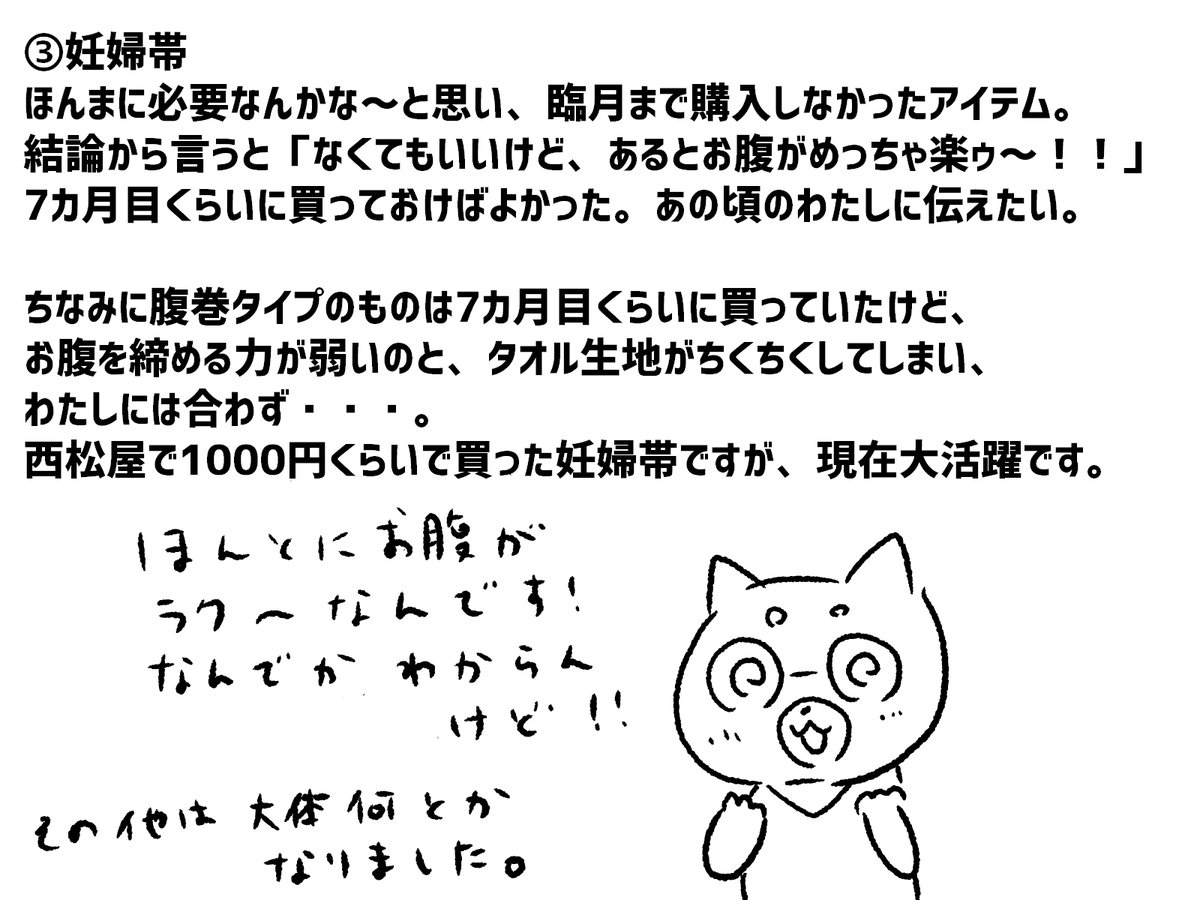 ③妊婦帯
ほんまに必要なんかな～と思い、臨月まで購入しなかったアイテム。
結論から言うと「なくてもいいけど、あるとお腹がめっちゃ楽ゥ～！！」
7カ月目くらいに買っておけばよかった。あの頃のわたしに伝えたい。
ちなみに腹巻タイプのものは7カ月目くらいに買っていたけど、
お腹を締める力が弱いのと、タオル生地がちくちくしてしまい、
わたしには合わず・・・。
西松屋で1000円くらいで買った妊婦帯ですが、現在大活躍です。
ほんとにお腹が
ラク～なんです!
なんでか わからん
けど!!
その他は 大体何とか
なりました。